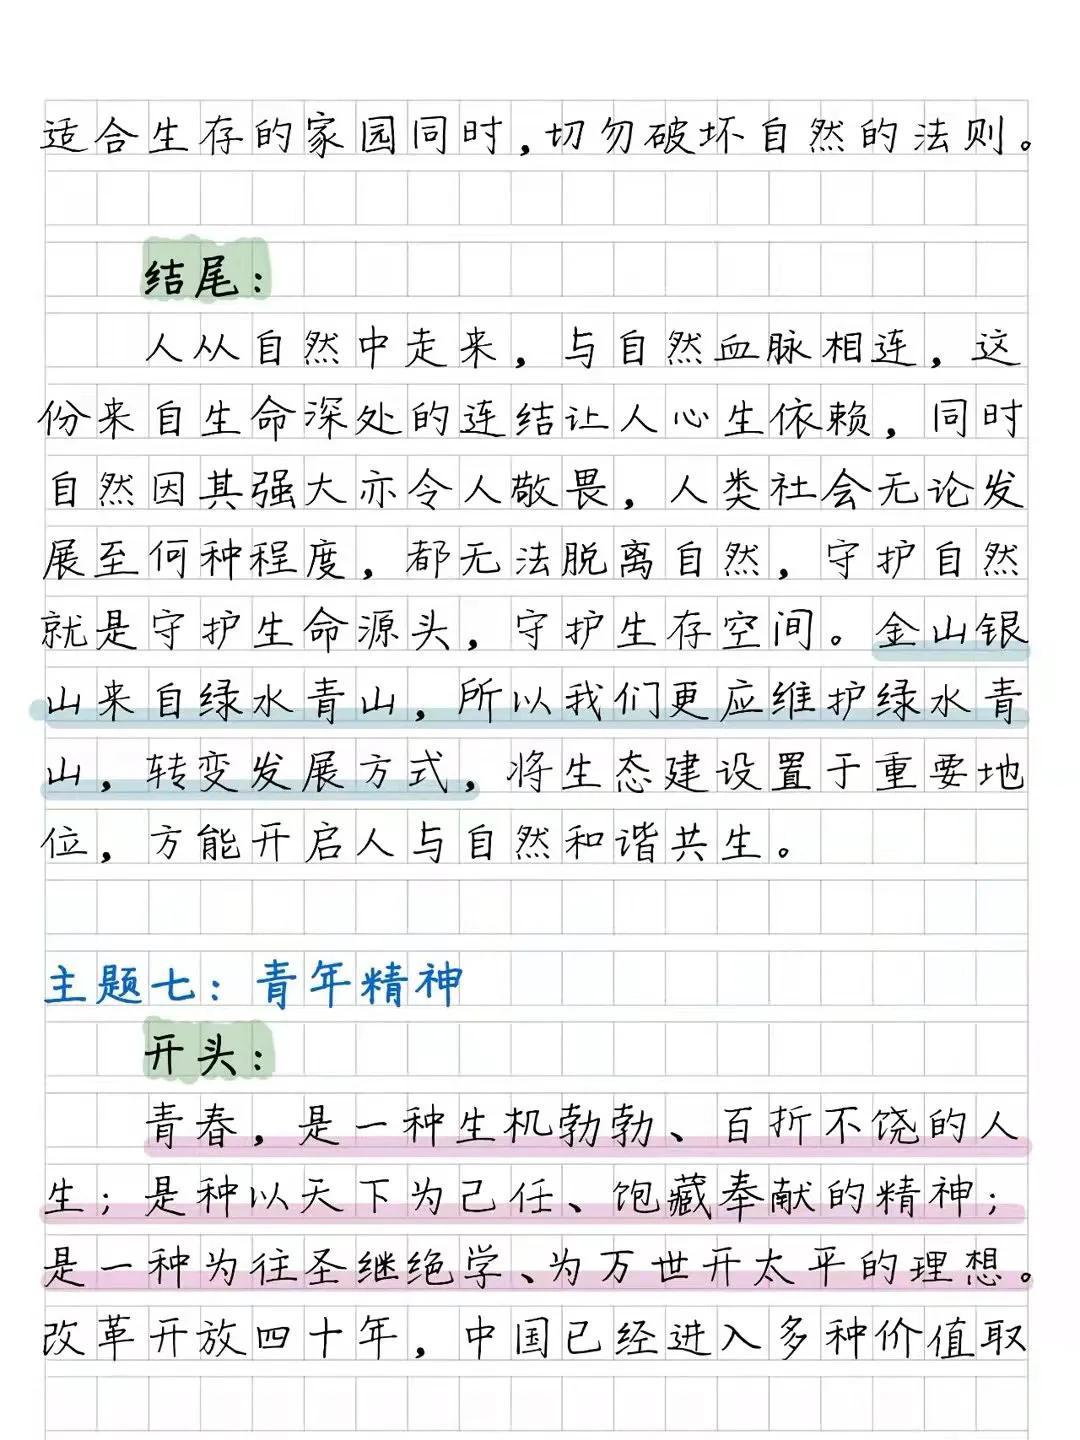 适合生存的家园同时,切勿破坏自然的法则。
结尾:
人从自然中走来,与自然血脉相连,这
份来自生命深处的连结让人心生依赖,同时
自然因其强大亦令人敬畏,人类社会无论发
展至何种程度,都无法脱离自然,守护自然
就是守护生命源头,守护生存空间。金山银
山来自绿水青山,所以我们更应维护绿水青
山,转变发展方式,将生态建设置于重要地
位,方能开启人与自然和谐共生。
主题七:青年精神
开头:
青春,是一种生机勃勃、百折不饶的人
生;是种以天下为己任、饱藏奉献的精神;
是一种为往圣继绝学、为万世开太平的理想。
改革开放四十年,中国已经进入多种价值取